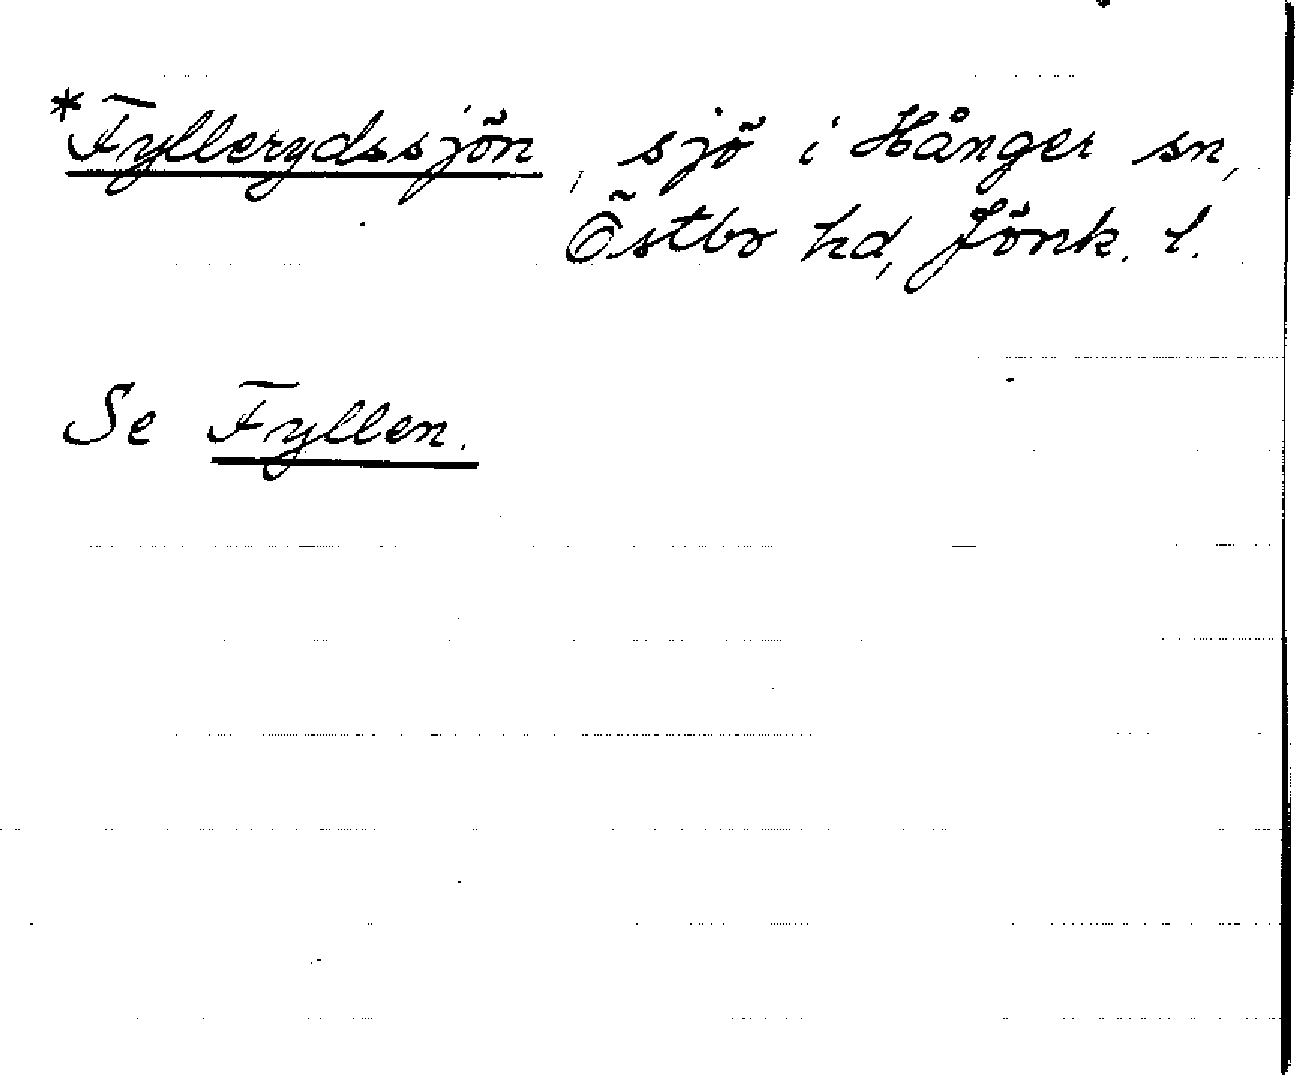 *Fyllerydssjön, sjö i Hånger sn,
Östbo hd, Jönk. l.
Se Fyllen.